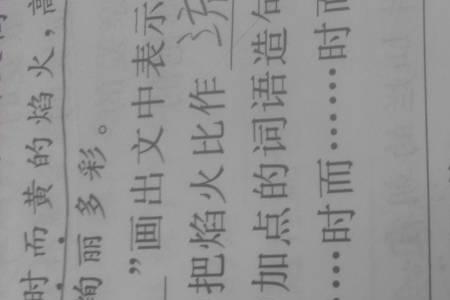 时而黄的焰火，高
绚丽多彩。
”画出文中表示
把焰火比作流
加点的词语造句
……时而……时而